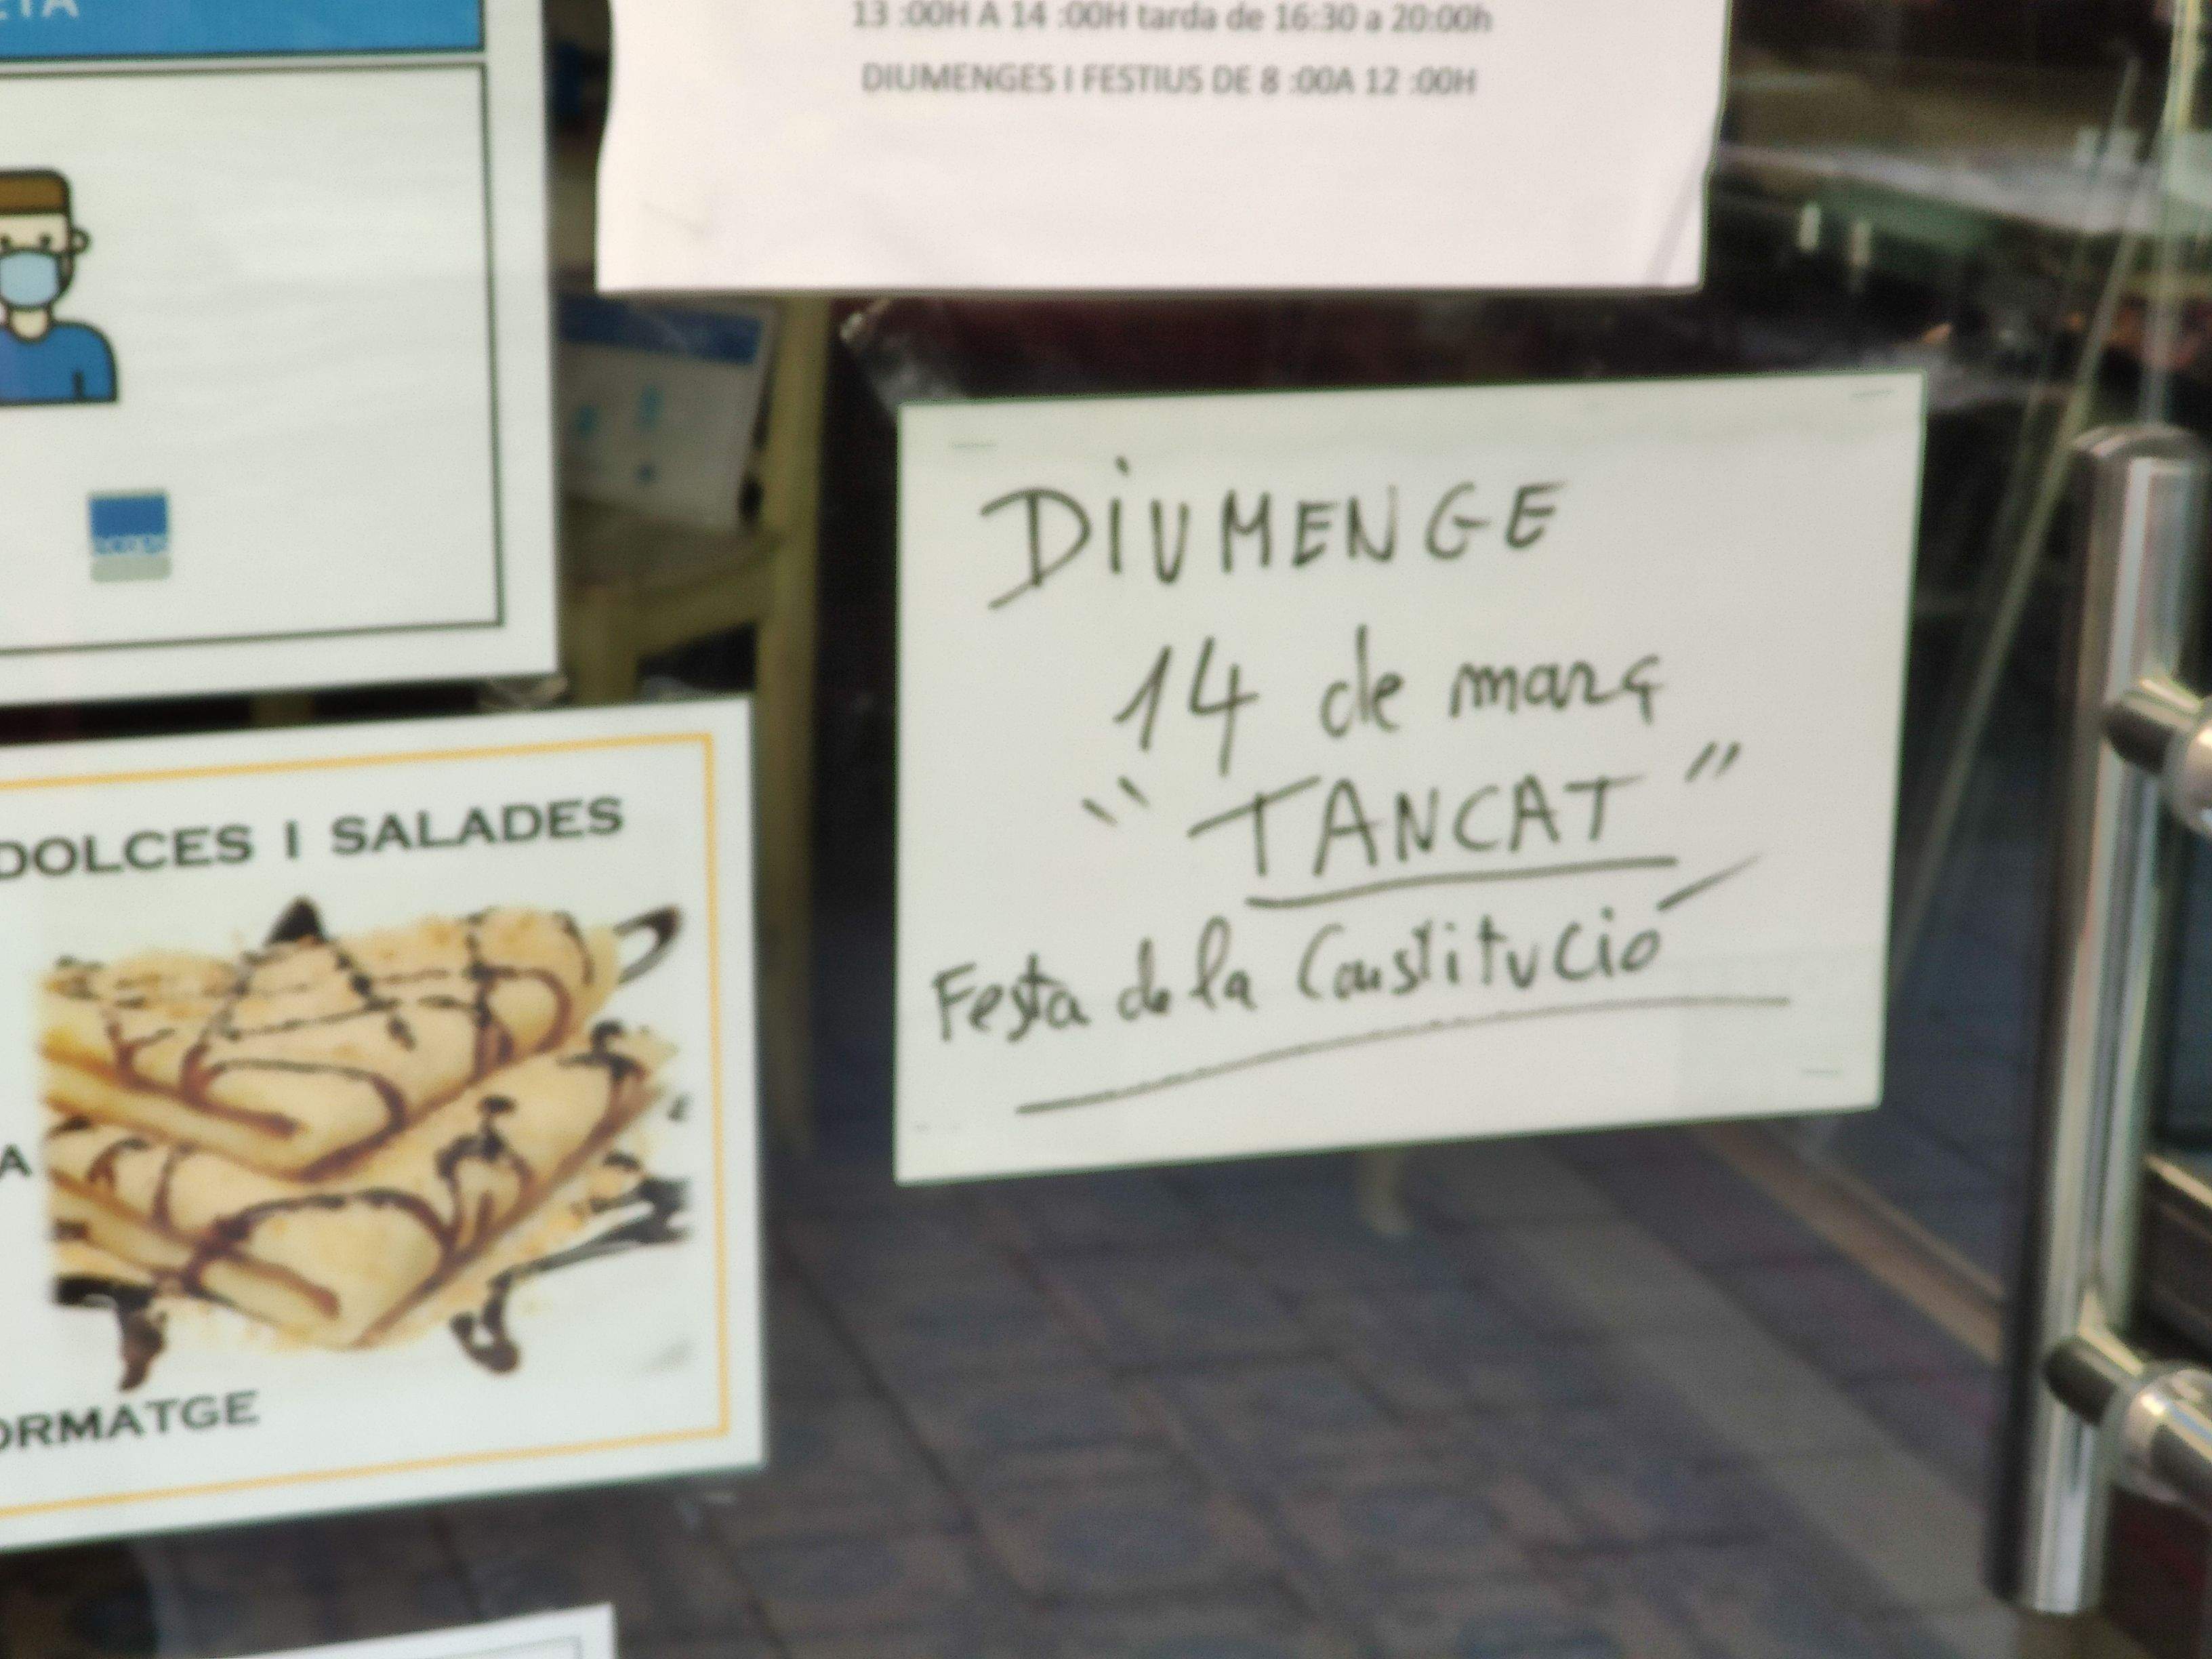 13 :00H A 14 :00H tarda de 16:30 a 20:00h
DIUMENGES I FESTIUS DE 8 :00A 12 :00H
DIUMENGE
14 de març
"TANCAT"
Festa de la Constitució
DOLCES I SALADES